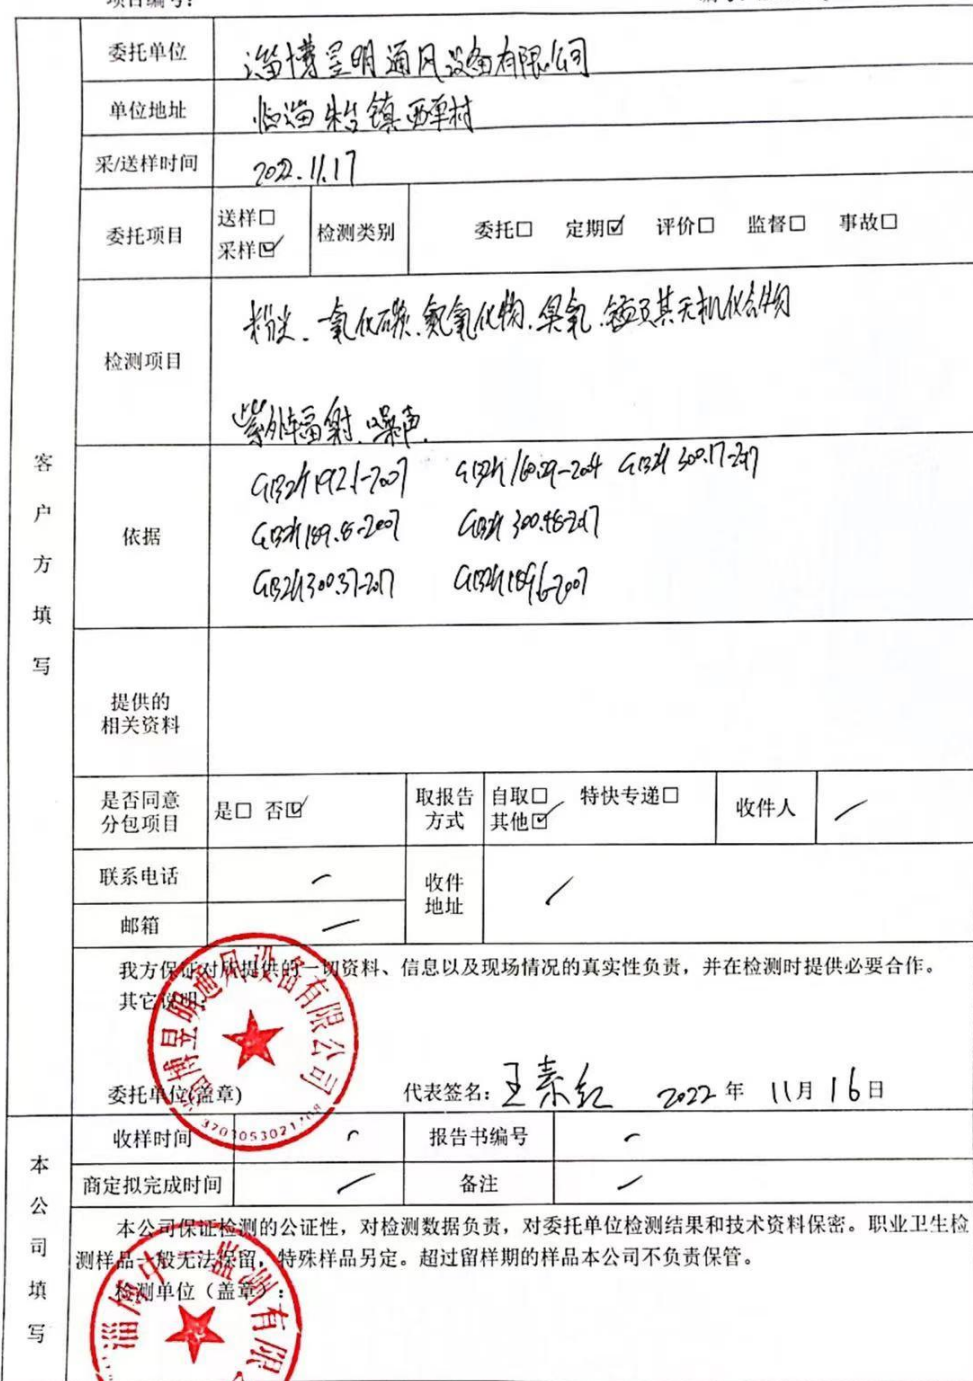 项目编号:
委托单位 淄博昱明通风设备有限公司
单位地址 临淄朱台镇西单村
采/送样时间 2022.11.17
委托项目 送样□ 采样☑ 检测类别 委托□ 定期☑ 评价□ 监督□ 事故□
检测项目 粉尘、一氧化碳、氮氧化物、臭氧、锰及其无机化合物
紫外辐射、噪声
客户方填写
依据 GBZ/T192.1-2007 GBZ/T160.29-2004 GBZ/T300.17-2017
GBZ/T189.8-2007 GBZ/T300.48-2017
GBZ/T300.37-2017 GBZ/T189.6-2007
提供的
相关资料
是否同意
分包项目 是□ 否☑ 取报告
方式 自取□ 特快专递□
其他☑ 收件人 /
联系电话 / 收件
地址 /
邮箱 /
我方保证对所提供的一切资料、信息以及现场情况的真实性负责，并在检测时提供必要合作。
其它说明:
淄博昱明通风设备有限公司
委托单位(盖章) 代表签名: 王素红 2022年 11月16日
收样时间 / 报告书编号 /
商定拟完成时间 / 备注 /
本公司填写
本公司保证检测的公证性，对检测数据负责，对委托单位检测结果和技术资料保密。职业卫生检
测样品一般无法保留，特殊样品另定。超过留样期的样品本公司不负责保管。
检测单位（盖章）: